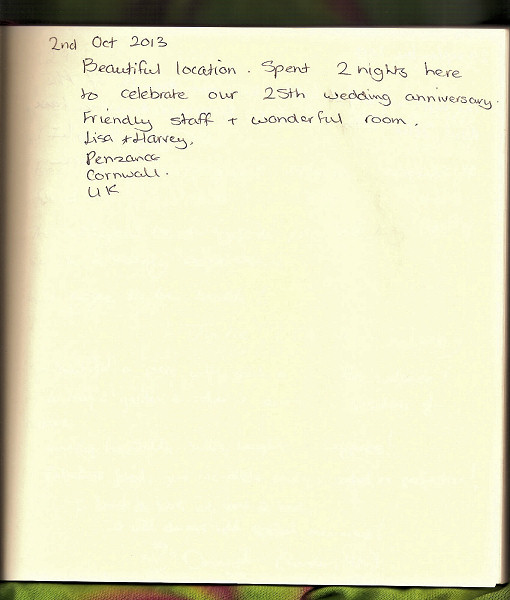 2nd Oct 2013
Beautiful location. Spent 2 nights here
to celebrate our 25th wedding anniversary.
Friendly staff + wonderful room.
Lisa + Harvey,
Penzance
Cornwall.
UK